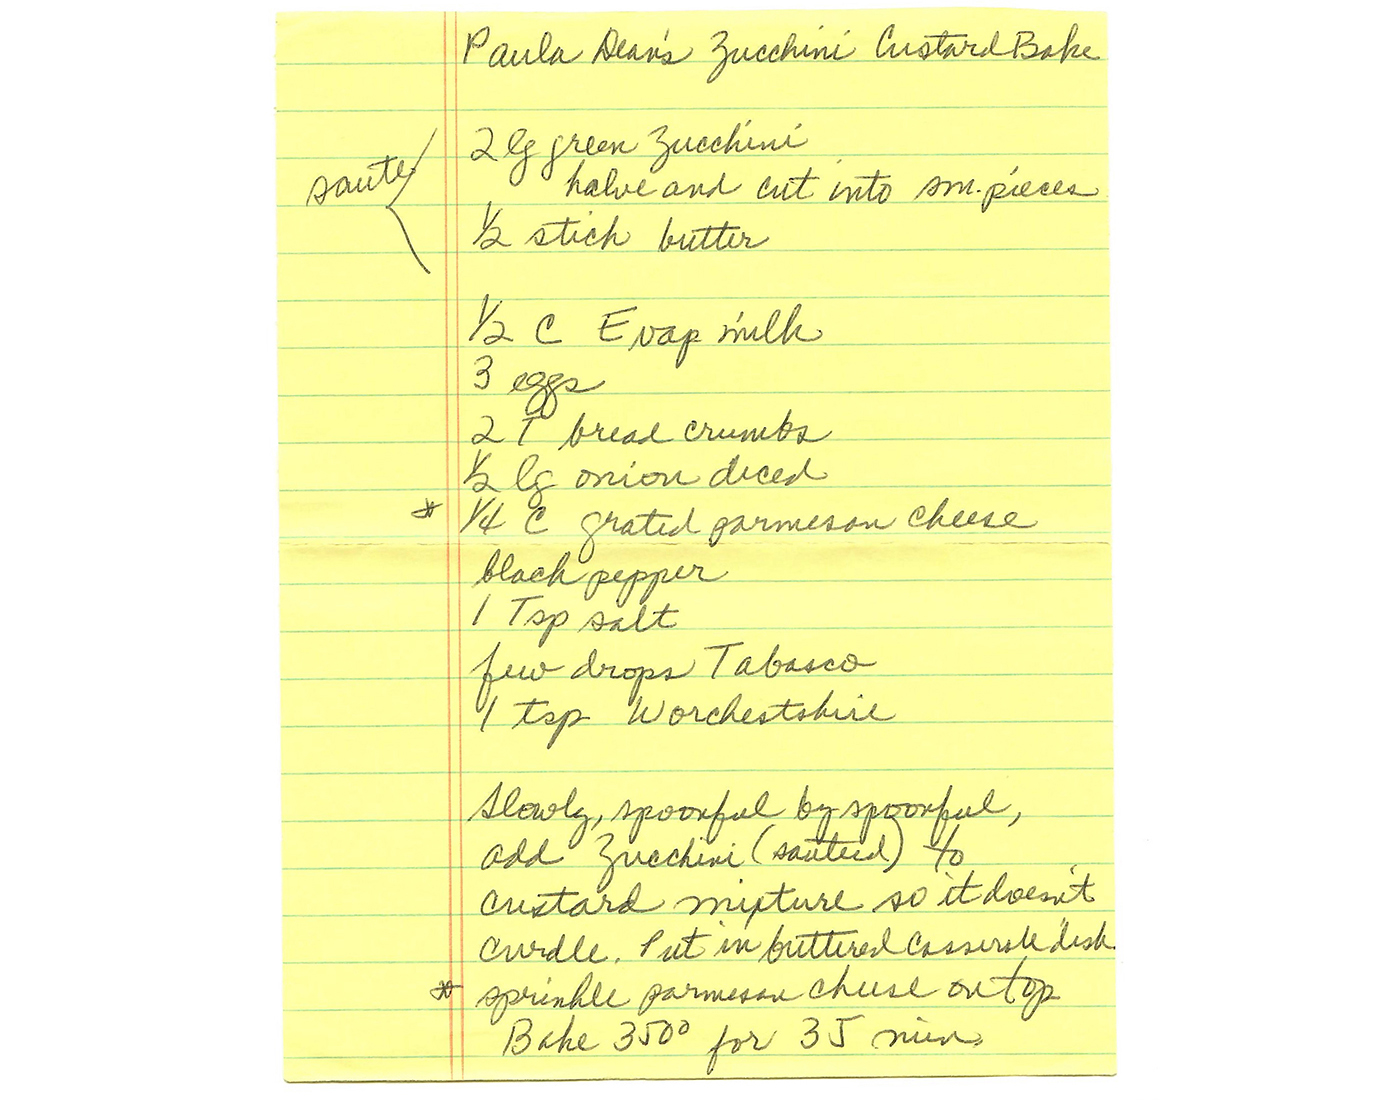 Paula Dean's Zucchini Custard Bake
2 lg green Zucchini
saute
halve and cut into sm. pieces
1/2 stick butter
1/2 C Evap milk
3 eggs
2 T bread crumbs
1/2 lg onion diced
* 1/4 C grated parmesan cheese
black pepper
1 Tsp salt
few drops Tabasco
1 tsp Worchestshire
Slowly, spoonful by spoonful,
add Zucchini (sauteed) to
custard mixture so it doesn't
curdle. Put in buttered casserole dish.
* sprinkle parmesan cheese on top
Bake 350° for 35 min.